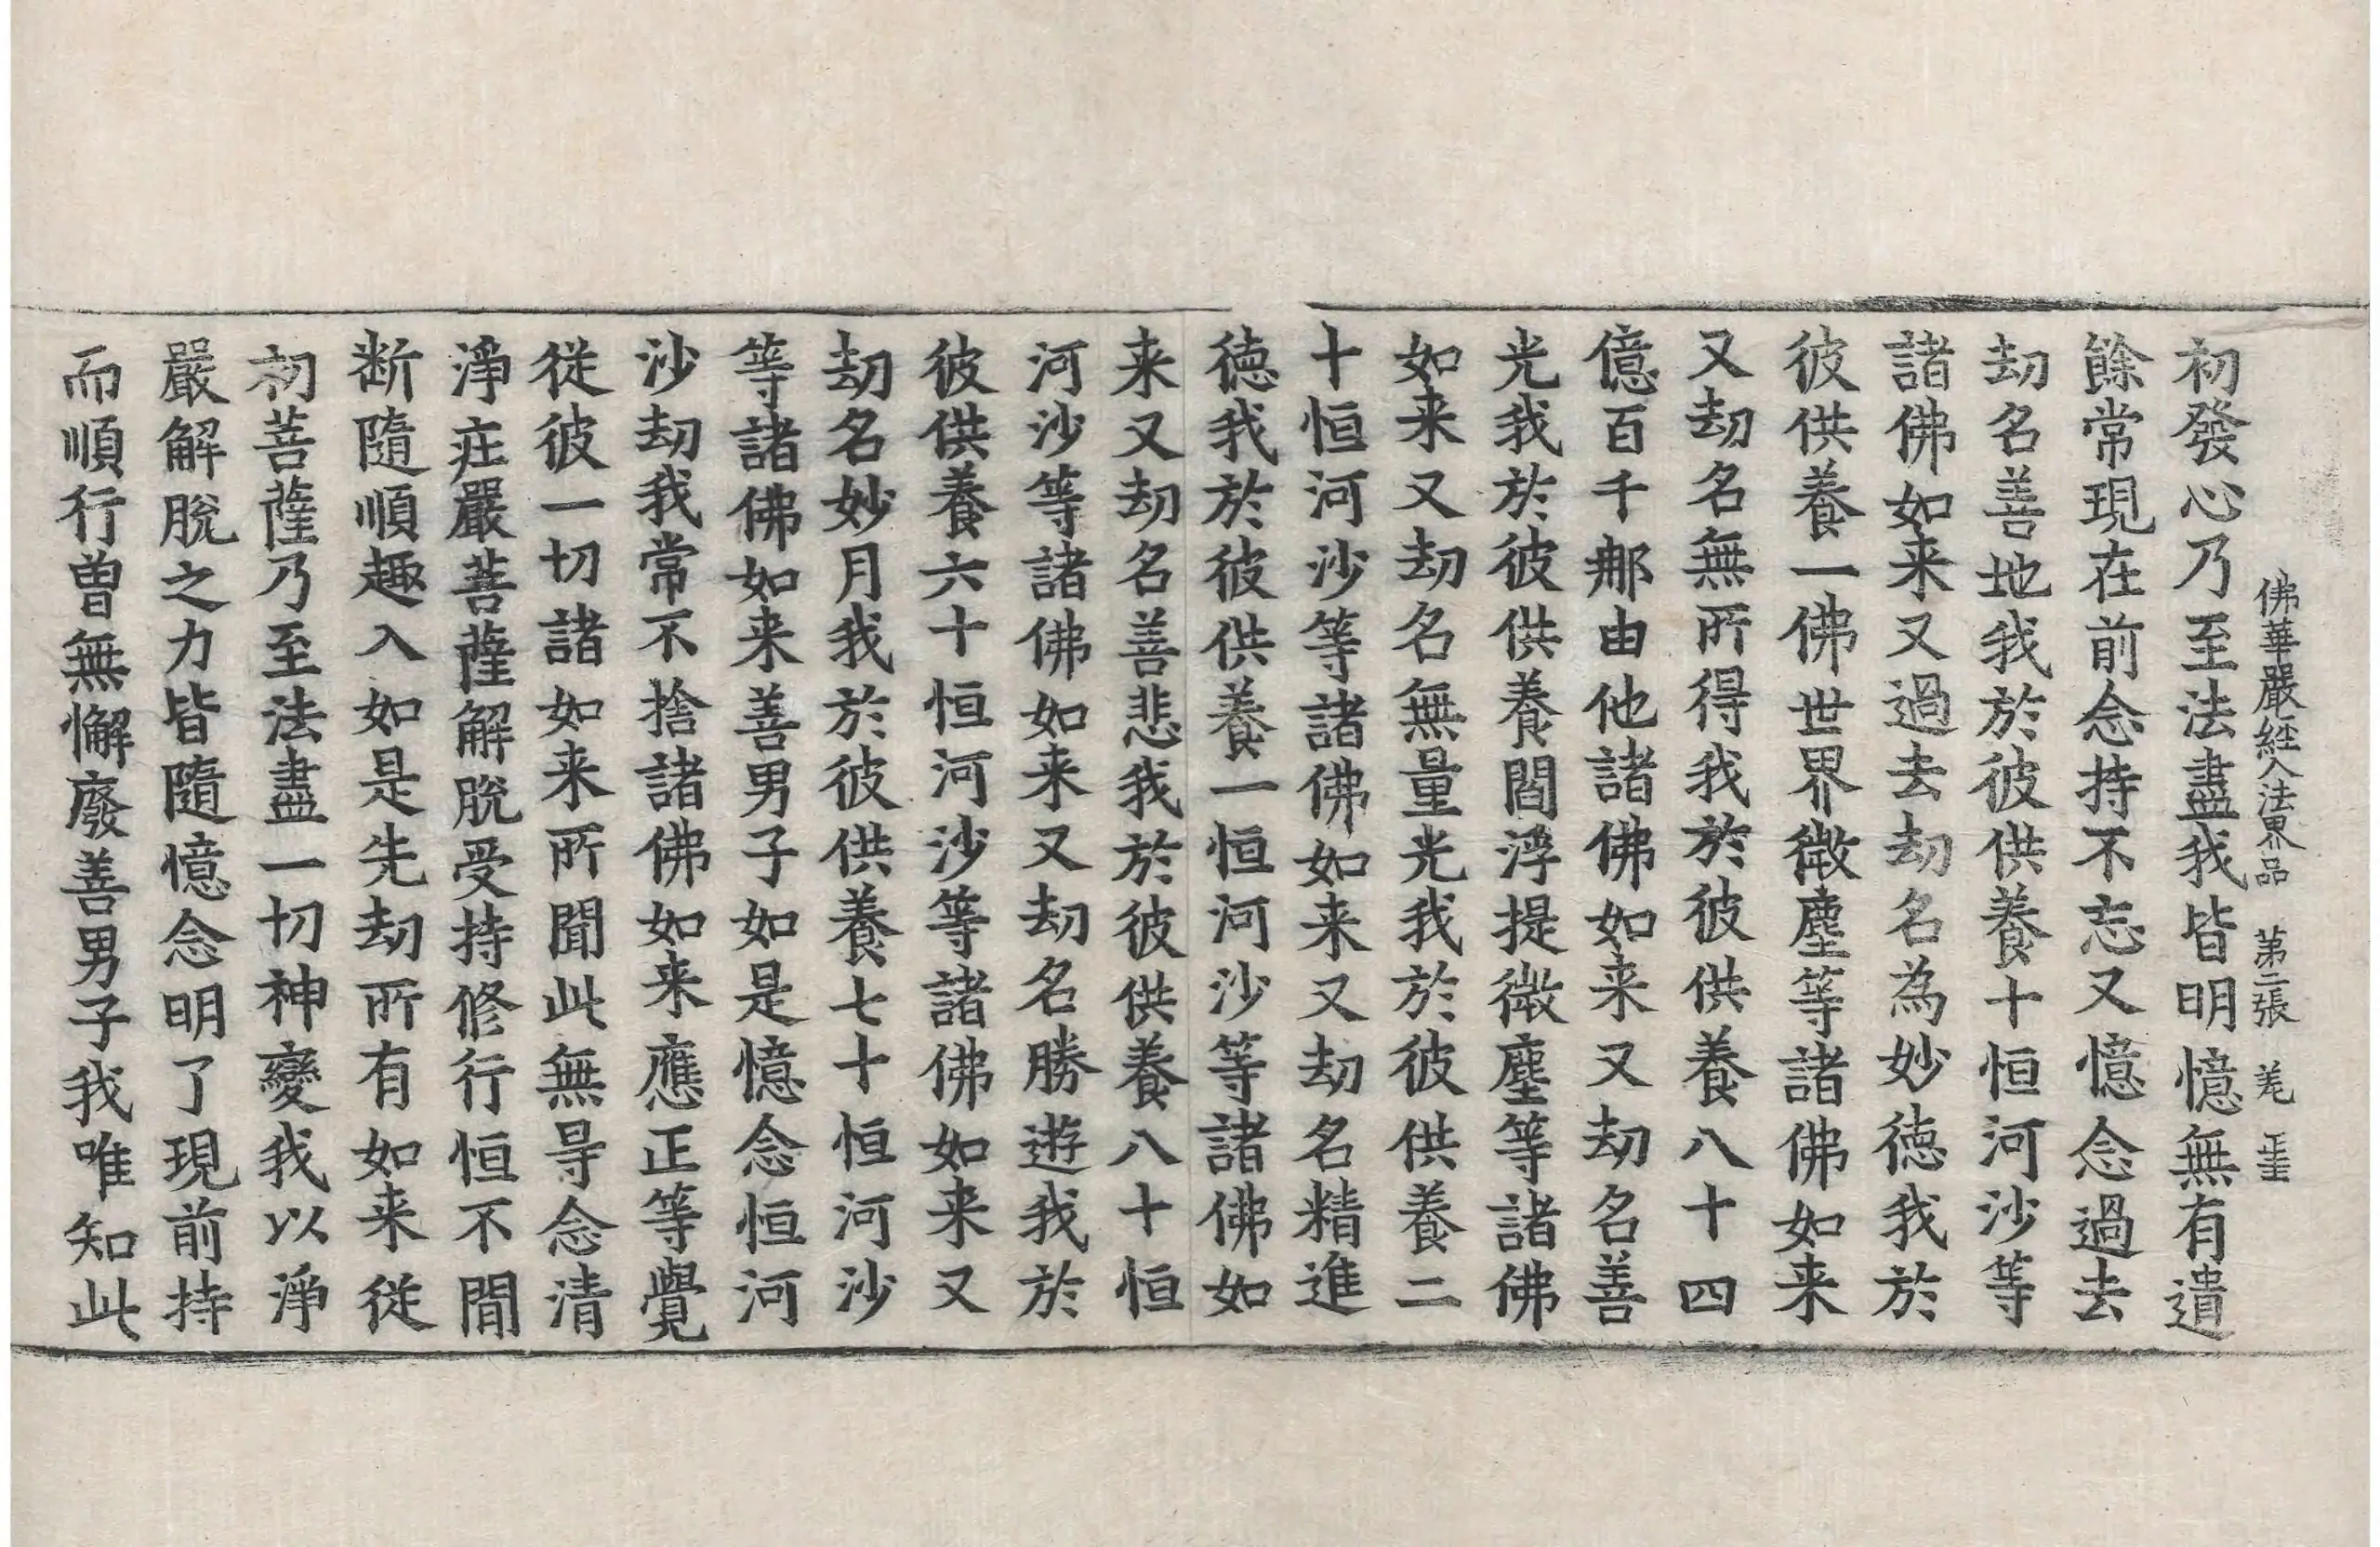 佛華嚴經入法界品 第二張 羌
初發心乃至法盡我皆明憶無有遺
餘常現在前念持不忘又憶念過去
劫名善地我於彼供養十恒河沙等
諸佛如来又過去劫名為妙德我於
彼供養一佛世界微塵等諸佛如来
又劫名無所得我於彼供養八十四
億百千那由他諸佛如来又劫名善
光我於彼供養閻浮提微塵等諸佛
如来又劫名無量光我於彼供養二
十恒河沙等諸佛如来又劫名精進
德我於彼供養一恒河沙等諸佛如
来又劫名善悲我於彼供養八十恒
河沙等諸佛如来又劫名勝遊我於
彼供養六十恒河沙等諸佛如来又
劫名妙月我於彼供養七十恒河沙
等諸佛如来善男子如是憶念恒河
沙劫我常不捨諸佛如来應正等覺
從彼一切諸如来所聞此無㝵念清
淨疘嚴菩薩解脫受持修行恒不間
断隨順趣入如是先劫所有如来從
初菩薩乃至法盡一切神變我以淨
嚴解脫之力皆隨憶念明了現前持
而順行曽無懈廢善男子我唯知此